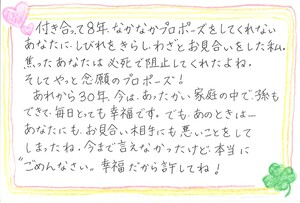 付き合って8年、なかなかプロポーズをしてくれない
あなたに、しびれをきらし、わざとお見合いをした私。
焦ったあなたは必死で阻止してくれたよね。
そしてやっと念願のプロポーズ！
あれから30年、今は、あったかい家庭の中で、孫も
できて、毎日とっても幸福です。でも、あのときは―
あなたにも、お見合い相手にも悪いことをして
しまったね。今まで言えなかったけど、本当に
“ごめんなさい。”幸福だから許してね！